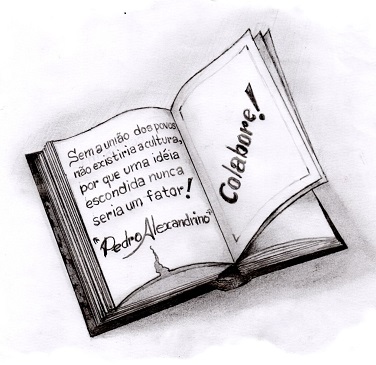 Sem a união dos povos
não existiria a cultura,
por que uma idéia
escondida nunca
seria um fator!
"Pedro Alexandrino"
Colabore!